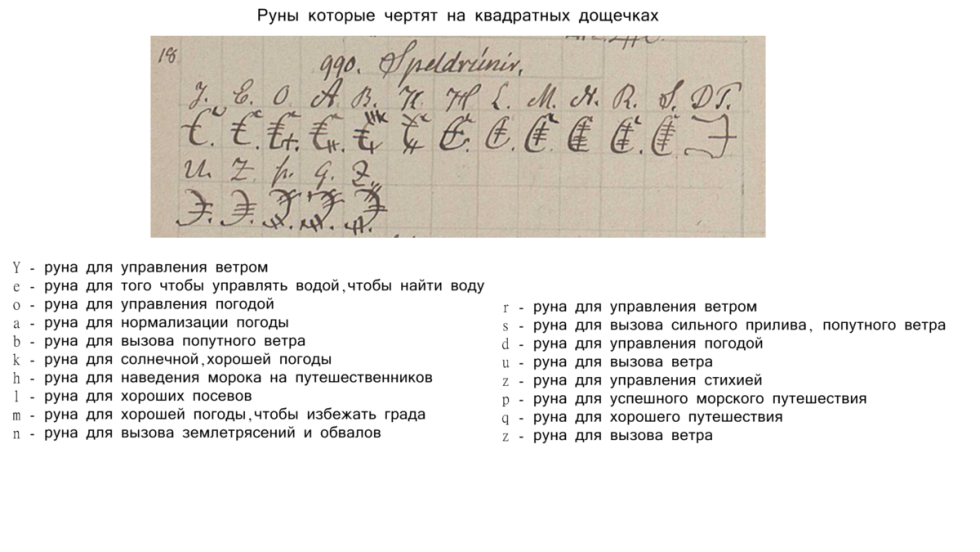 Руны которые чертят на квадратных дощечках
18
990. Speldrúnir.
Y. E. O. A. B. K. H. L. M. N. R. S. D T.
U. Z. p. q. Z.
Y - руна для управления ветром
e - руна для того чтобы управлять водой,чтобы найти воду
o - руна для управления погодой
a - руна для нормализации погоды
b - руна для вызова попутного ветра
k - руна для солнечной,хорошей погоды
h - руна для наведения морока на путешественников
l - руна для хороших посевов
m - руна для хорошей погоды,чтобы избежать града
n - руна для вызова землетрясений и обвалов
r - руна для управления ветром
s - руна для вызова сильного прилива, попутного ветра
d - руна для управления погодой
u - руна для вызова ветра
z - руна для управления стихией
p - руна для успешного морского путешествия
q - руна для хорошего путешествия
z - руна для вызова ветра